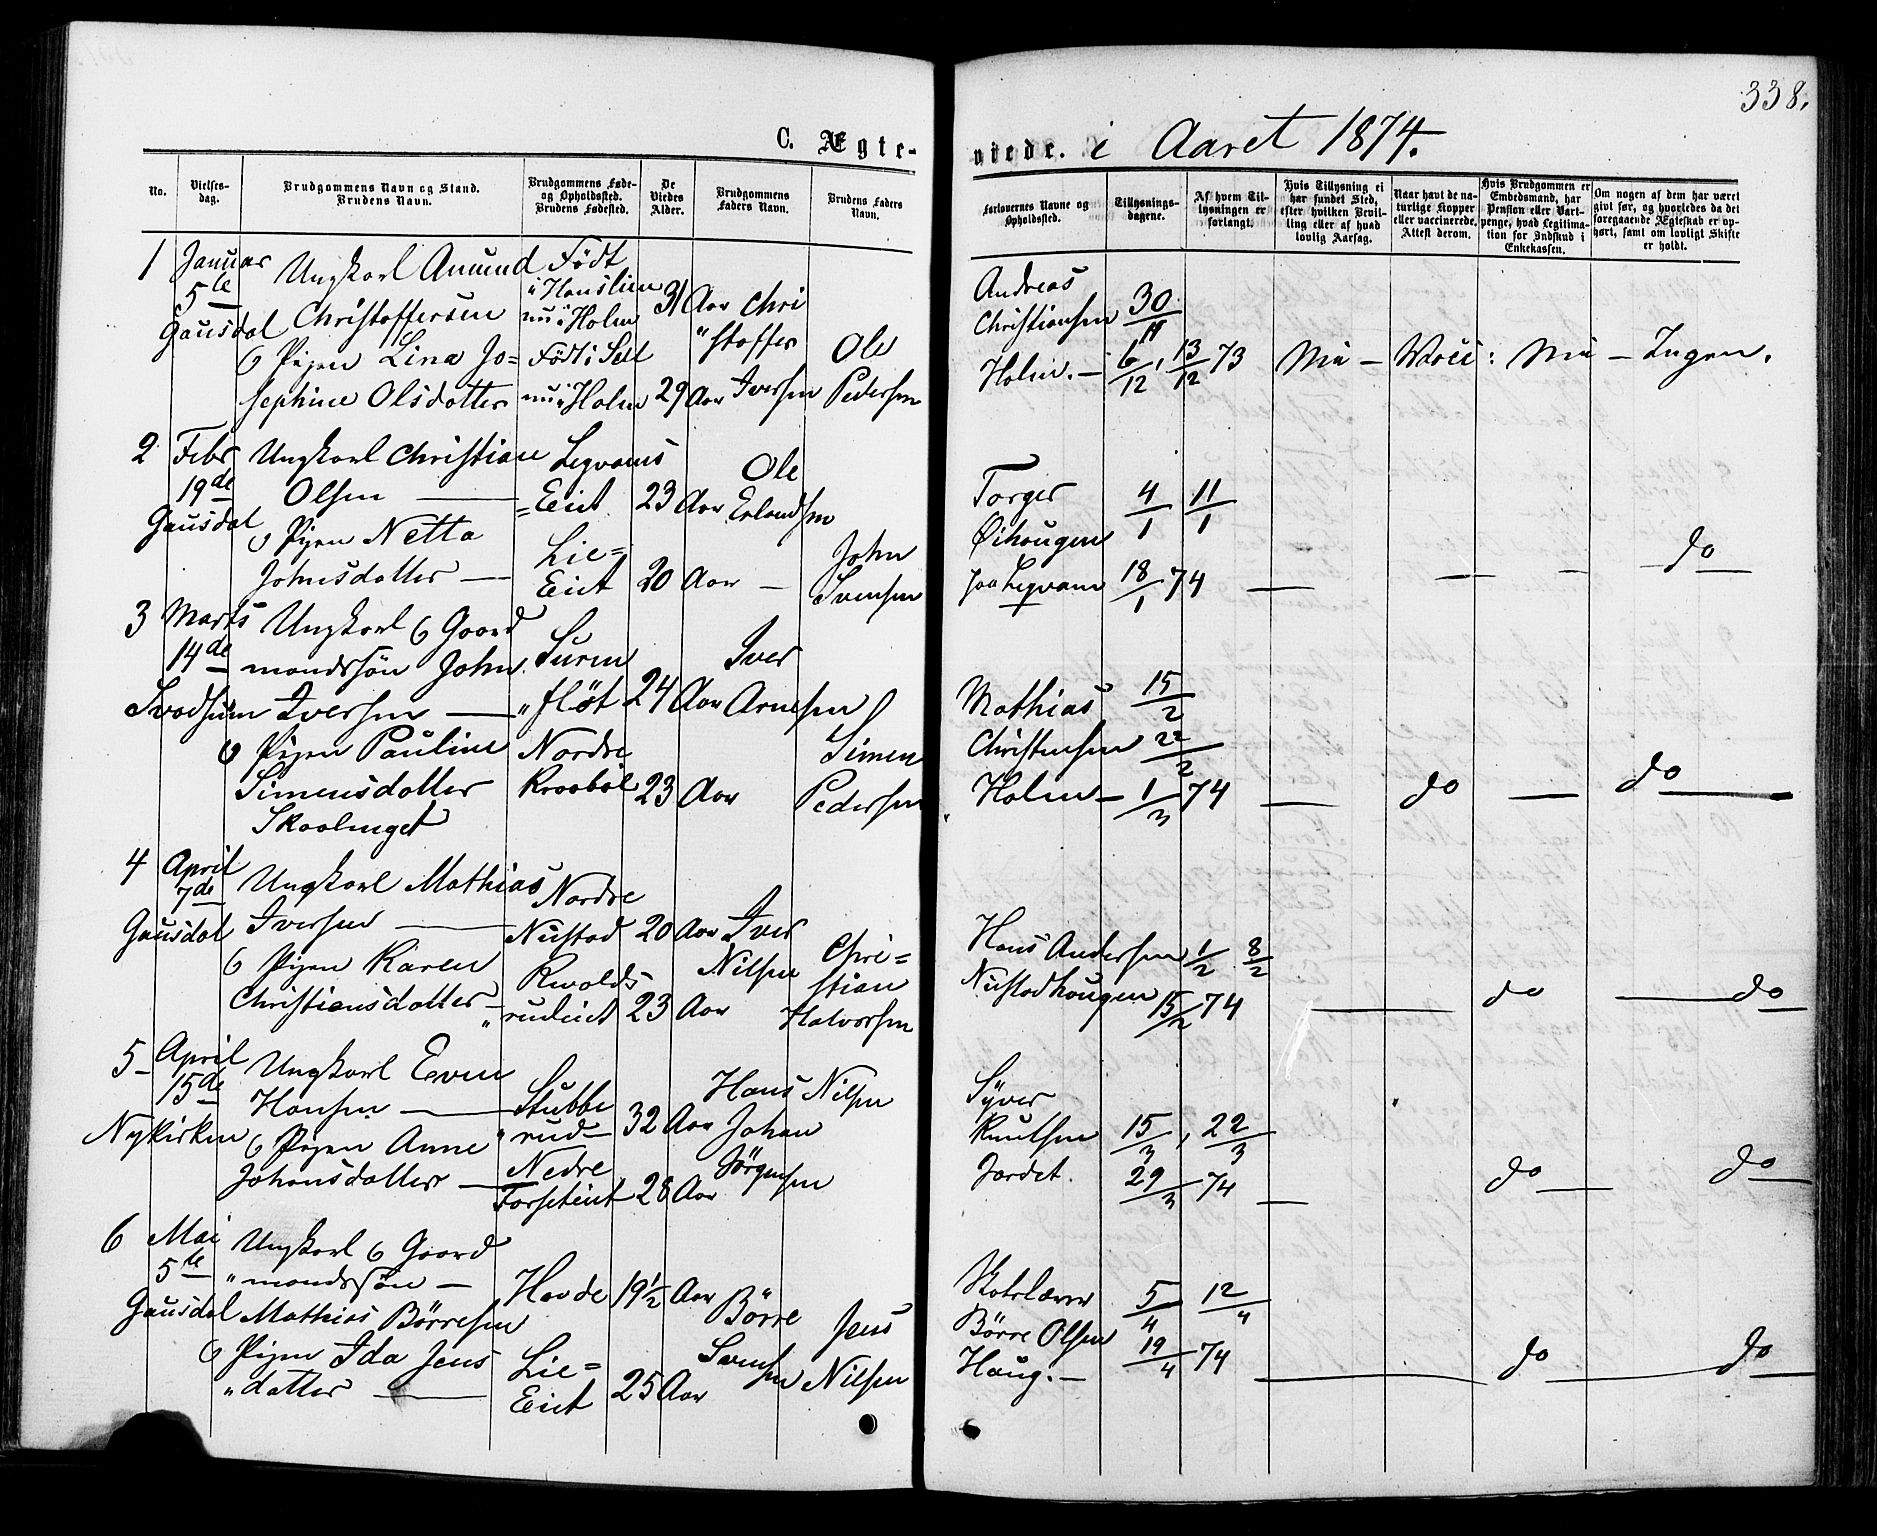 338.
C. Ægte-
viede. i Aaret 1874.
No.
Vielses-
dag.
Brudgommens Navn og Stand.
Brudens Navn.
Brudgommens Føde-
og Opholdssted.
Brudens Fødested.
De
Viedes
Alder.
Brudgommens
Faders Navn.
Brudens Faders
Navn.
Forlovernes Navne og
Opholdssted.
Tillysnings-
dagene.
Af hvem Til-
lysningen er
forlangt.
Hvis Tillysning ei
har fundet Sted,
efter hvilken Bevil-
ling eller af hvad
lovlig Aarsag.
Naar havt de na-
turlige Kopper
eller vaccinerede.
Attest derom.
Hvis Brudgommen er
Embedsmand, har
Pension eller Vart-
penge, hvad Legitima-
tion for Indskud i
Enkekassen.
Om nogen af dem har været
gift før, og hvorledes da det
foregaaende Ægteskab er op-
hørt, samt om lovligt Skifte
er holdt.
1
Januar
5te
Gausdal
Ungkarl Amund
Christoffersen
o Pigen Lina Jo=
sephine Olsdatter
Født
i Hauslien
nu i Holm
Født i Sell
nu i Holm
31 Aar
29 Aar
Chri
"stoffer
Iversen
Ole
Pedersen
Andreas
Christiansen
Holm. -
30/11
6/12, 13/12 73
Nei - Vacc: Nei - Ingen.
2
Febr
19de
Gausdal
Ungkarl Christian
Olsen
o Pigen Netta
Johnsdatter
Legvams
=Eiet
Lie=
Eiet
23 Aar
20 Aar -
Ole
Erlandsen
John
Svensen
Torger
Øihougen
paa Legvam
4/1 11/1
18/1 74
— — — do
3
Marts
14de
Svadsum
Ungkarl o Gaard
mandssøn John
Iversen
o Pigen Pauline
Simensdatter
Skaalinget
Suren
"fløt
Nordre
Kraabøl
24 Aar
23 Aar
Iver
Arnesen
Simen
Pedersen
Mathias
Christensen
Holm -
15/2
22/2
1/3 74
— do — do
4
April
7de
Gausdal
Ungkarl Mathias
Iversen
o Pigen Karen
Christiansdatter
Nordre
Nustad
Rwolds
"rudeiet
20 Aar
23 Aar
Iver
Nilsen
Chri=
stian
Halvorsen
Hans Andersen
Nustadhougen
1/2 8/2
15/2 74
— do — do
5
April
15de
Nykirken
Ungkarl Even
Hansen
o Pigen Anne
Johansdatter
Stubbe
"rud
Nedre
Forseteiet
32 Aar
28 Aar
Hans Nilsen
Johan
Jørgensen
Syver
Knutsen
Jordet.
15/3, 22/3
29/3 74
— do — do
6
Mai
5te
Gausdal
Ungkarl o Gaard
"mandssøn -
Mathias Børresen
o Pigen Ida Jens
"datter
Hovde
Lie=
Eiet
19 1/2 Aar
25 Aar
Børre
Svensen
Jens
Nilsen
Skolelærer
Børre Olsen
Haug. -
5/4 12/4
19/4 74
— do — do